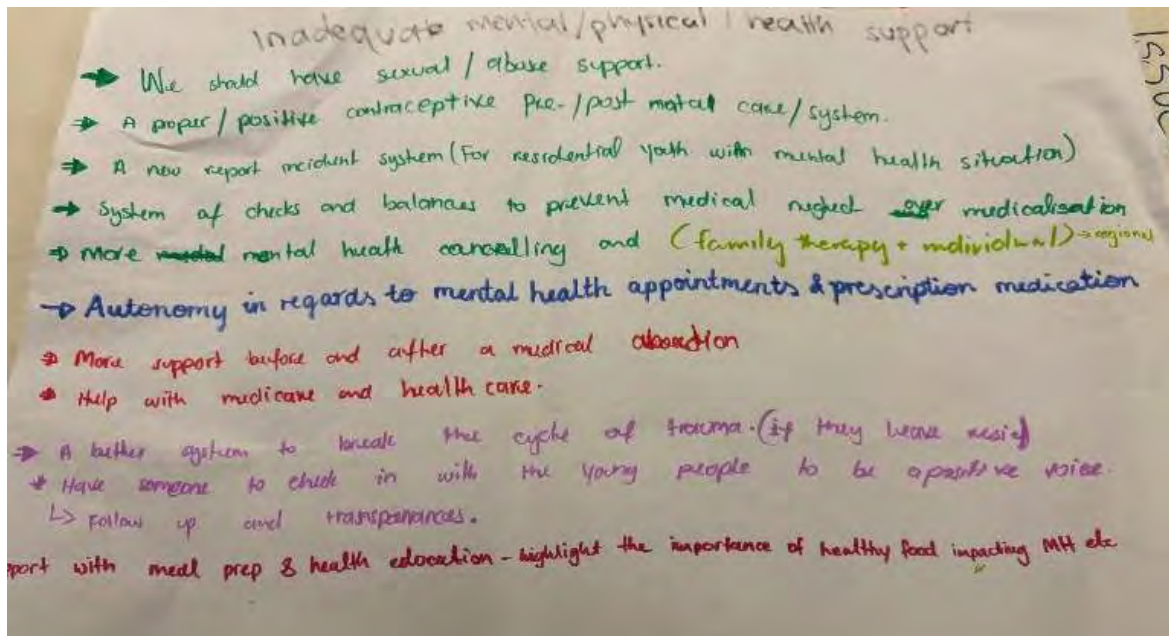 Inadequate mental/physical/health support
→ We should have sexual/abuse support.
→ A proper/positive contraceptive pre-/post natal care/system.
→ A new report incident system (For residential youth with mental health situation)
→ System of checks and balances to prevent medical neglect medicalisation
→ More mental health cancelling and (family therapy + individual) → regional
→ Autonomy in regards to mental health appointments & prescription medication
→ More support before and after a medical abortion
→ Help with medicare and health care.
→ A better system to break the cycle of trauma. (if they leave resi)
→ Have someone to check in with the young people to be a positive voice.
↳ Follow up and transparances.
port with meal prep & health education - highlight the importance of healthy food impacting MH etc